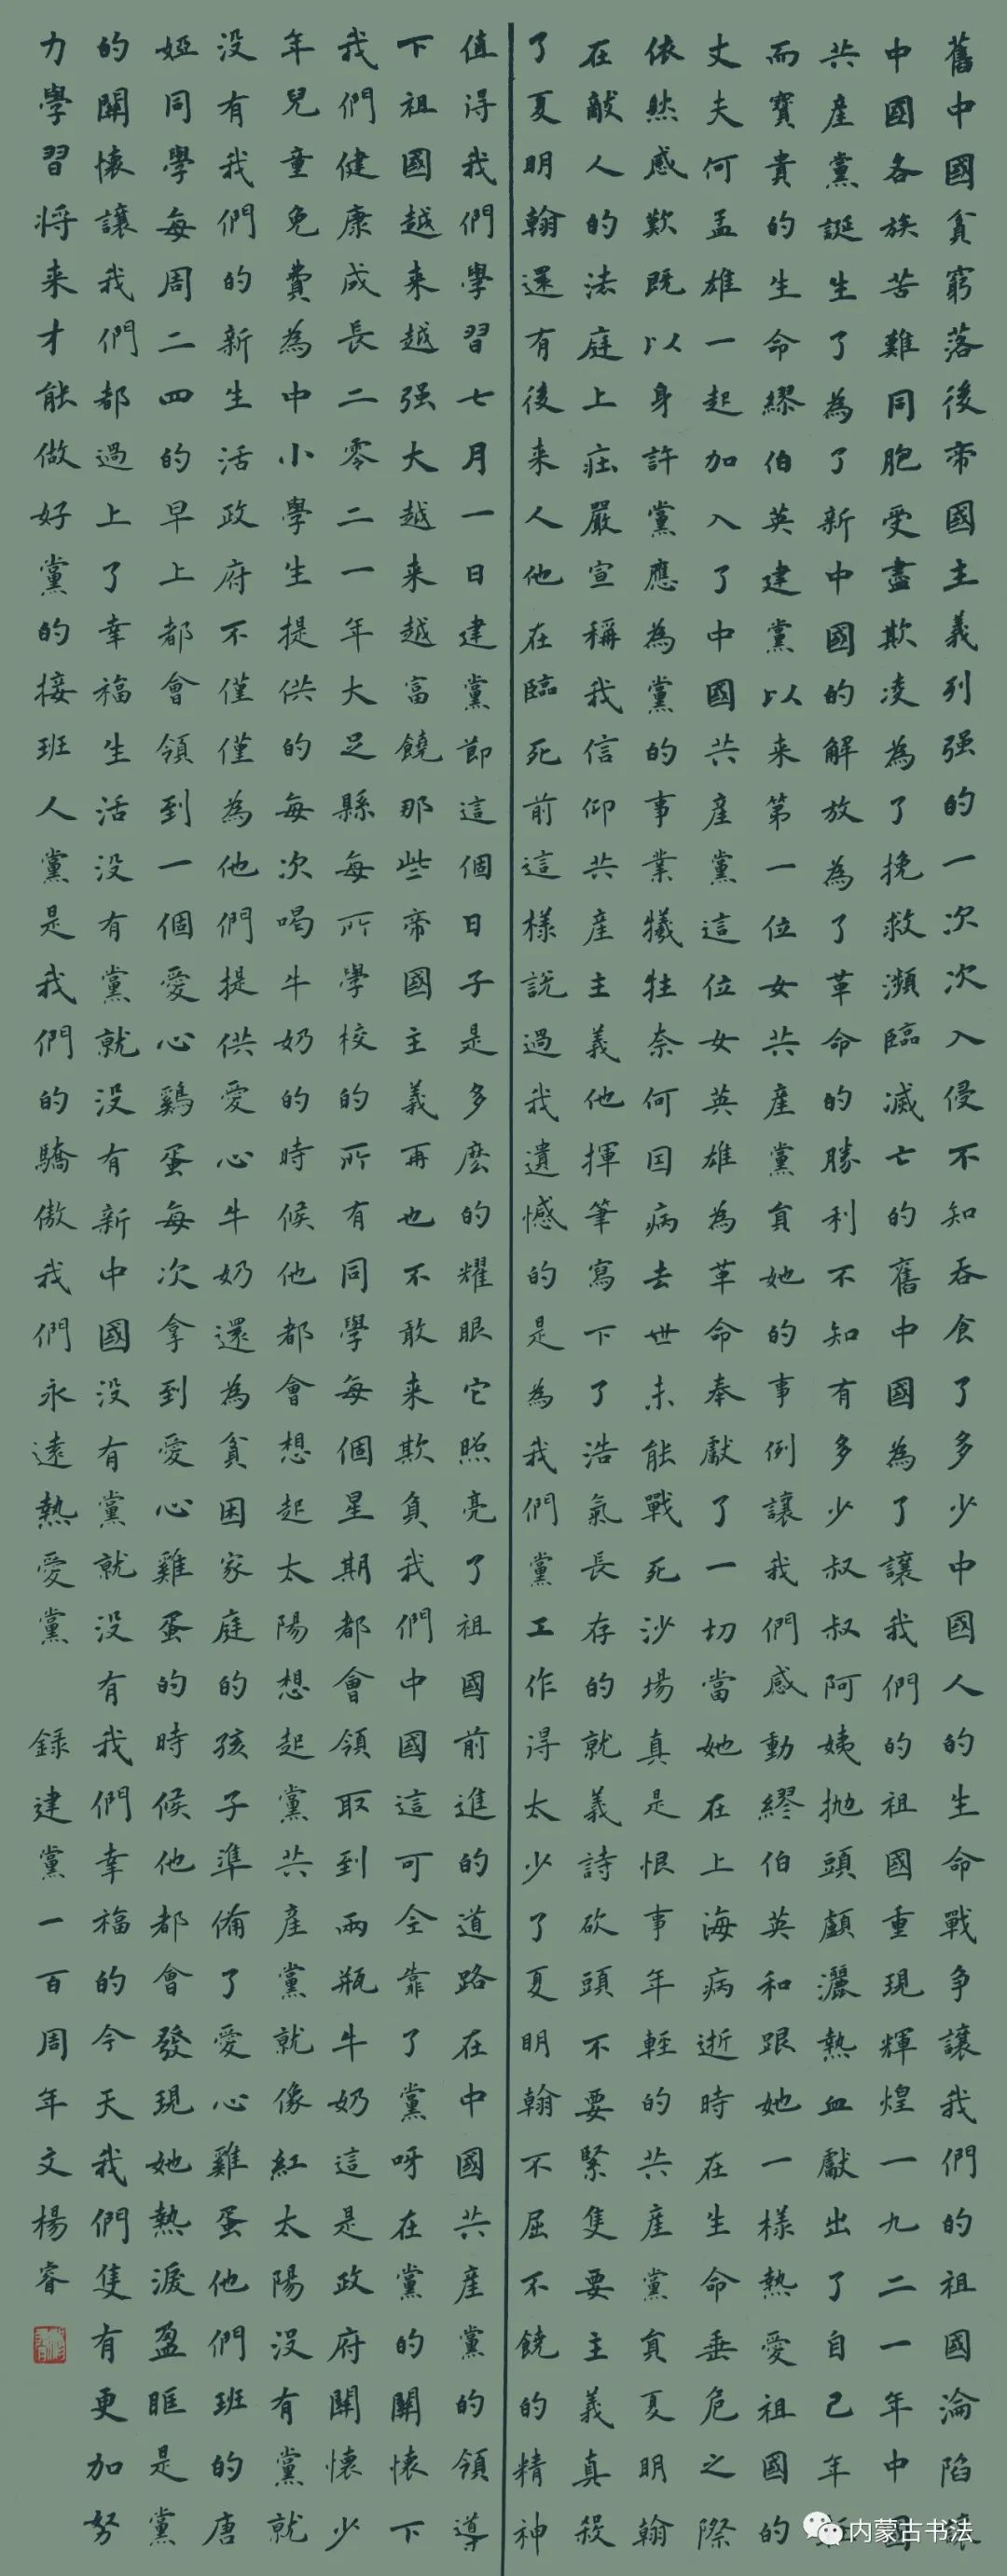 舊中國貧窮落後帝國主義列强的一次次入侵不知吞食了多少中國人的生命戰争讓我們的祖國淪陷
中國各族苦難同胞受盡欺凌為了挽救瀕臨滅亡的舊中國為了讓我們的祖國重現輝煌一九二一年中國
共産黨誕生了為了新中國的解放為了革命的勝利不知有多少叔叔阿姨抛頭顱灑熱血獻出了自己年
而寶貴的生命繆伯英建黨以来第一位女共産黨員她的事例讓我們感動繆伯英和跟她一樣熱愛祖國的
丈夫何孟雄一起加入了中國共産黨這位女英雄為革命奉獻了一切當她在上海病逝時在生命垂危之際
依然感歎既以身許黨應為黨的事業犧牲奈何因病去世未能戰死沙場真是恨事年輕的共産黨員夏明翰
在敵人的法庭上莊嚴宣稱我信仰共産主義他揮筆寫下了浩氣長存的就義詩砍頭不要緊隻要主義真殺
了夏明翰還有後来人他在臨死前這樣説過我遺憾的是為我們黨工作得太少了夏明翰不屈不饒的精神
值得我們學習七月一日建黨節這個日子是多麽的耀眼它照亮了祖國前進的道路在中國共産黨的領導
下祖國越来越强大越来越富饒那些帝國主義再也不敢来欺負我們中國這可全靠了黨呀在黨的關懷下
我們健康成長二零二一年大足縣每所學校的所有同學每個星期都會領取到兩瓶牛奶這是政府關懷少
年兒童免費為中小學生提供的每次喝牛奶的時候他都會想起太陽想起黨共産黨就像紅太陽没有黨就
没有我們的新生活政府不僅僅為他們提供愛心牛奶還為貧困家庭的孩子準備了愛心雞蛋他們班的唐
婭同學每周二四的早上都會領到一個愛心鷄蛋每次拿到愛心雞蛋的時候他都會發現她熱淚盈眶是黨
的關懷讓我們都過上了幸福生活没有黨就没有新中國没有黨就没有我們幸福的今天我們隻有更加努
力學習將来才能做好黨的接班人黨是我們的驕傲我們永遠熱愛黨 錄建黨一百周年文楊睿
内蒙古书法